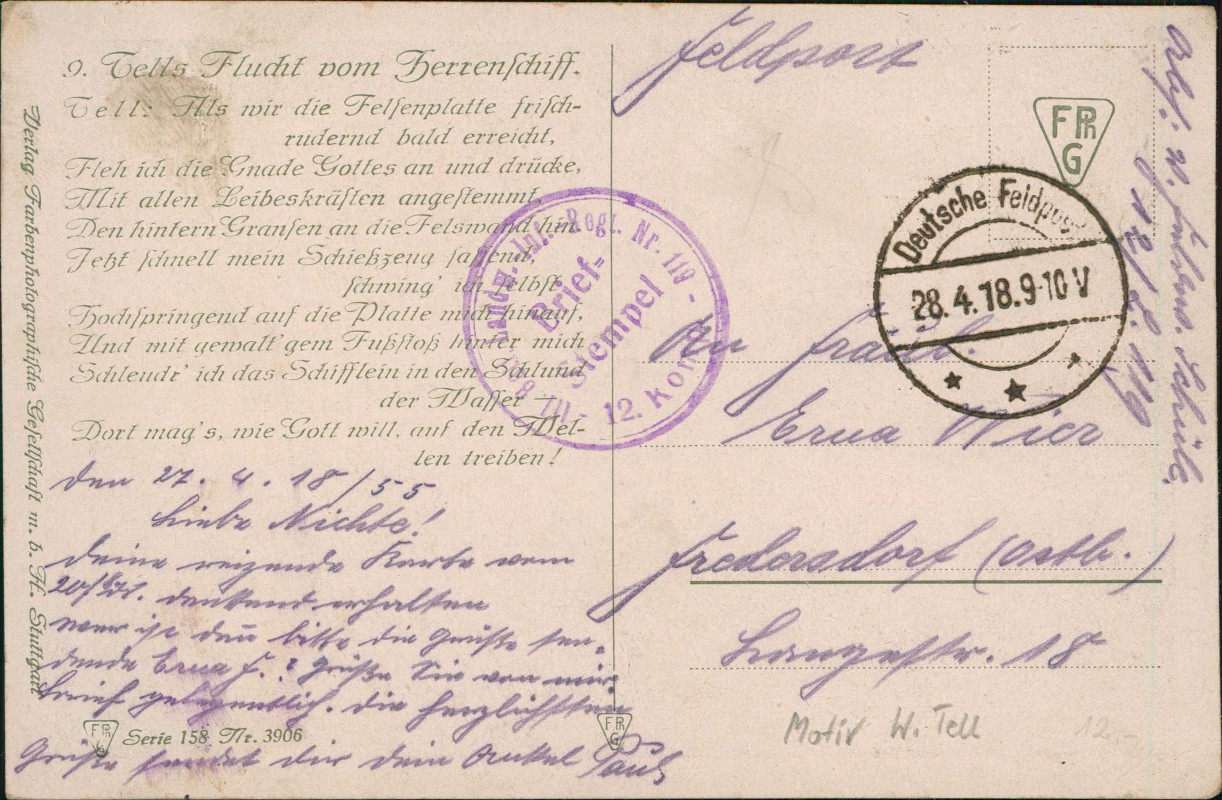 9. Tells Flucht vom Herrenschiff.
Tell: Als wir die Felsenplatte frisch-
rudernd bald erreicht,
Fleh ich die Gnade Gottes an und drücke,
Mit allen Leibeskräften angestemmt,
Den hintern Gransen an die Felswand hin.
Jetzt schnell mein Schießzeug fassend,
schwing' ich selbst
Hochspringend auf die Platte mich hinauf,
Und mit gewalt'gem Fußstoß hinter mich
Schleudr' ich das Schifflein in den Schlund
der Wasser —
Dort mag's, wie Gott will, auf den Wel-
len treiben!
Verlag Farbenphotographische Gesellschaft m. b. H. Stuttgart
den 27. 4. 18/55
Liebe Nichte!
Deine reizende Karte vom
20/4 dankend erhalten
wer ist den bitte die Grüße sen-
dende Erna F.? Grüße Sie von mir.
Brief gelegentlich. Die herzlichsten
Grüße sendet dir dein Onkel Paul
FPhG
Serie 158 Nr. 3906
FPhG
Landw. Inf. Regt. Nr. 119
Brief-
Stempel
III - 12. Komp
Feldpost
FPhG
Deutsche Feldpost
28.4.18.9-10V
An Fräul.
Erna Wier
Fredersdorf (Ostb.)
Langestr. 18
Abs. 119
Motiv W. Tell
12.-